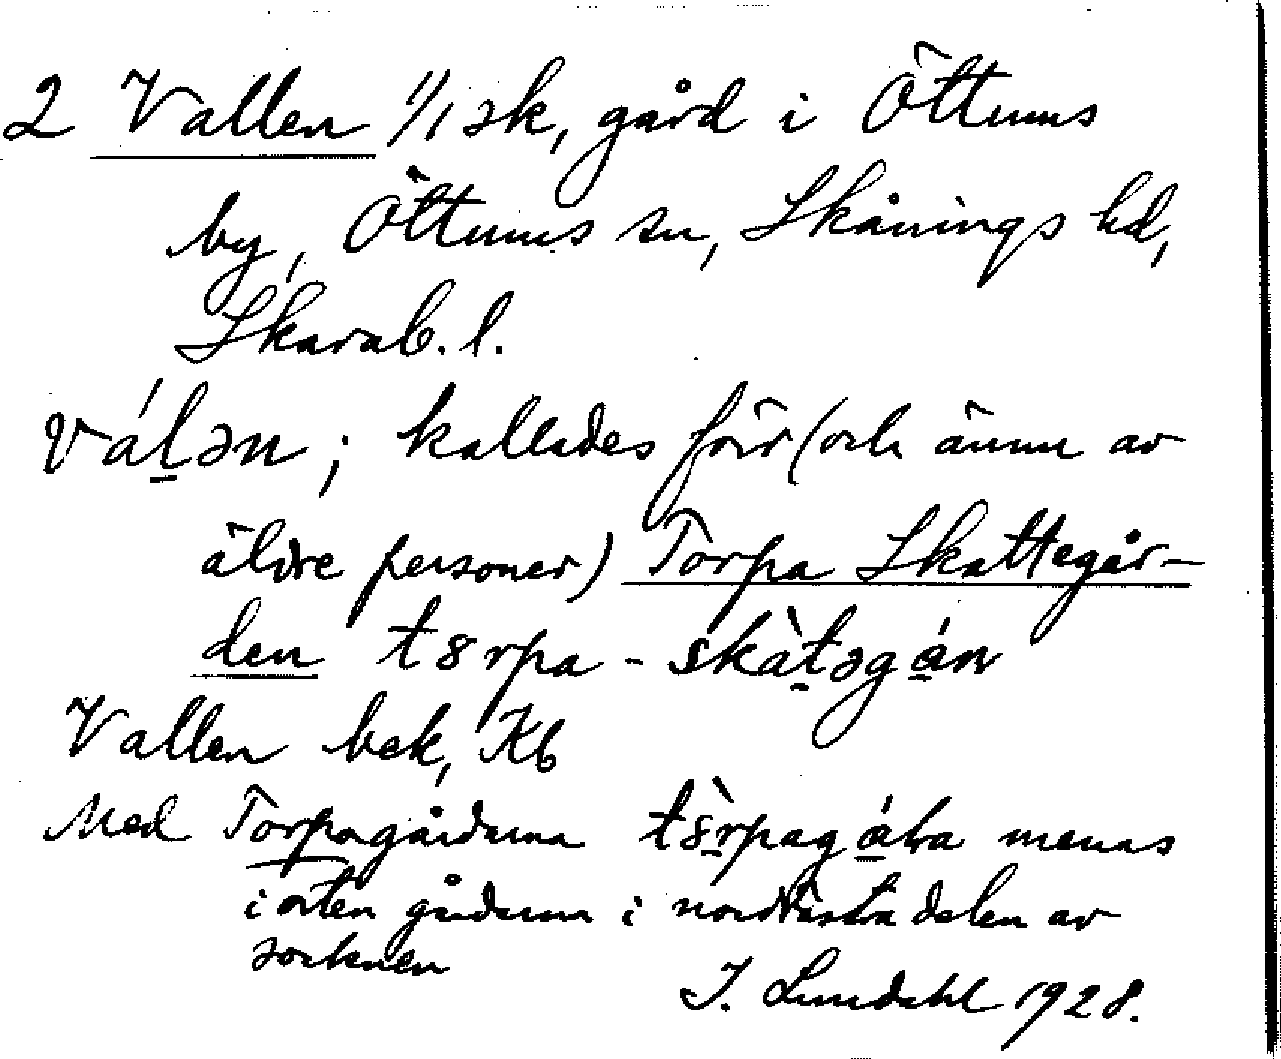 2 Vallen 1/1 sk, gård i Öttums
by, Öttums sn, Skånings hd,
Skarab. l.
vál̠ən; kallades förr (och ännu av
äldre personer) Torpa Skattegår-
den t8rpa-skàt̠əgá̠n
Vallen bek, Kb
Med Torpagårdarna t8̀r̠pagá̠ɫa menas
i orten gårdarna i nordvästra delen av
socknen
I. Lundahl 1928.